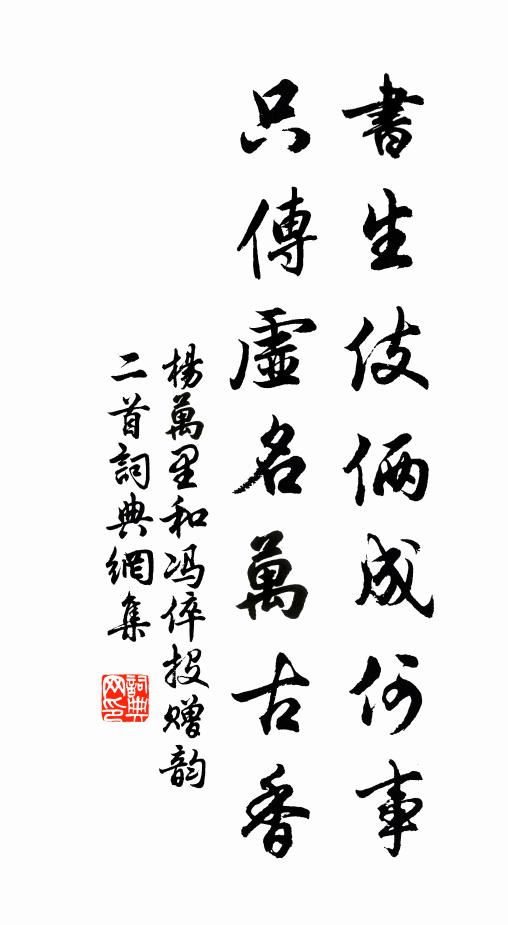 書生伎倆成何事
只傳虛名萬古香
楊萬里和冯倅投赠韵
二首詞典網集
詞典
网印